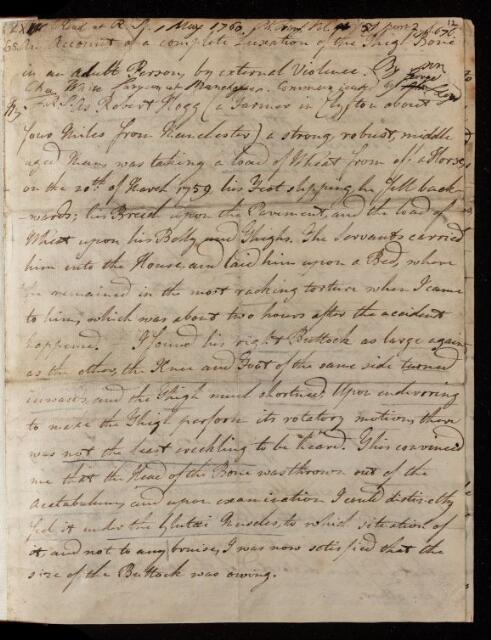 Read at R. S. 1 May 1760.
An Account of a complete Luxation of the Thigh Bone
in an adult Person, by external Violence. By
Cha. White Surgeon at Manchester. Communicated by
F.R.S. Robert Hogg (a Farmer in Clayton about
four Miles from Manchester) a strong, robust, middle
aged Man, was taking a load of Wheat from off a Horse,
on the 20th. of March 1759. his Foot slipping, he fell back
-wards; his Breech upon the Pavement, and the load of
Wheat upon his Belly and Thighs. The Servants carried
him into the House, and laid him upon a Bed, where
he remained in the most racking torture when I came
to him, which was about two hours after the accident
happened. I found his right Buttock as large again
as the other, the Knee and Foot of the same side turned
inwards, and the Thigh much shortned. Upon endevoring
to make the Thigh perform its rotatory motion, there
was not the least crackling to be heard. This convinced
me that the Head of the Bone was thrown out of the
acetabulum, and upon examination I could distinctly
feel it under the Glutæi Muscles, to which situation of
it and not to any bruise, I was now satisfied that the
size of the Buttock was owing.